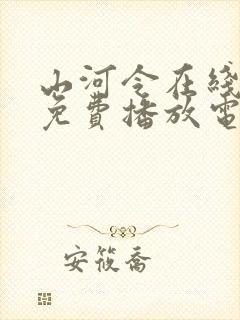 山河令在线
免费播放电
安筱乔